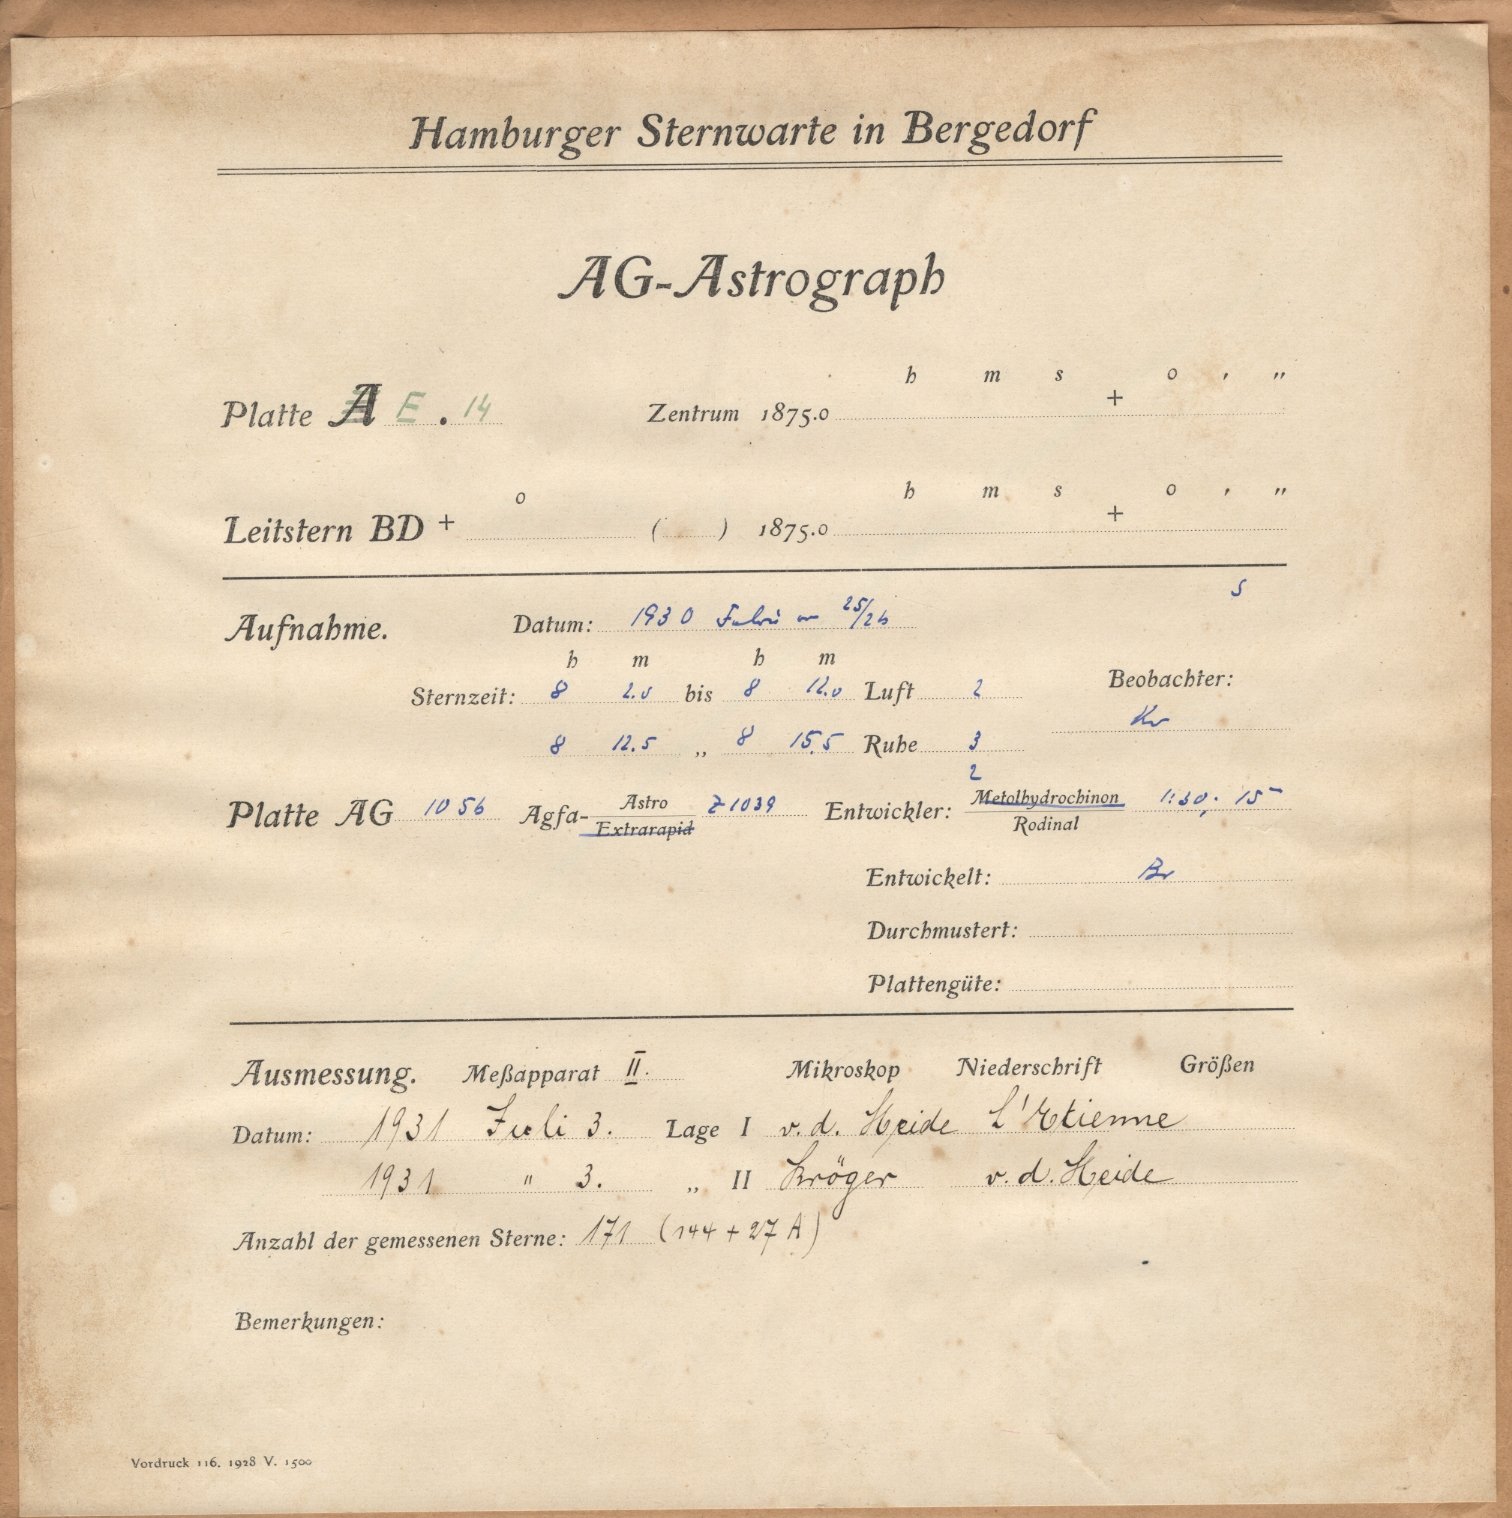 Hamburger Sternwarte in Bergedorf
AG-Astrograph
h m s o ′ ″
Platte A E . 14 Zentrum 1875.0 +
o h m s o ′ ″
Leitstern BD + ( ) 1875.0 +
5
Aufnahme. Datum: 1930 25/26
h m h m
Sternzeit: 8 2.0 bis 8 12.0 Luft 2 Beobachter:
Kr
8 12.5 „ 8 15.5 Ruhe 3
2
Platte AG 1056 Agfa- Astro Z 1039 Entwickler: Metolhydrochinon 1:30; 15
Extrarapid Rodinal
Entwickelt: Br
Durchmustert:
Plattengüte:
Ausmessung. Meßapparat II. Mikroskop Niederschrift Größen
Datum: 1931 Juli 3. Lage I v. d. Heide L'Etienne
1931 " 3. „ II Kröger v. d. Heide
Anzahl der gemessenen Sterne: 171 (144 + 27 A)
Bemerkungen:
Vordruck 116. 1928 V. 1500